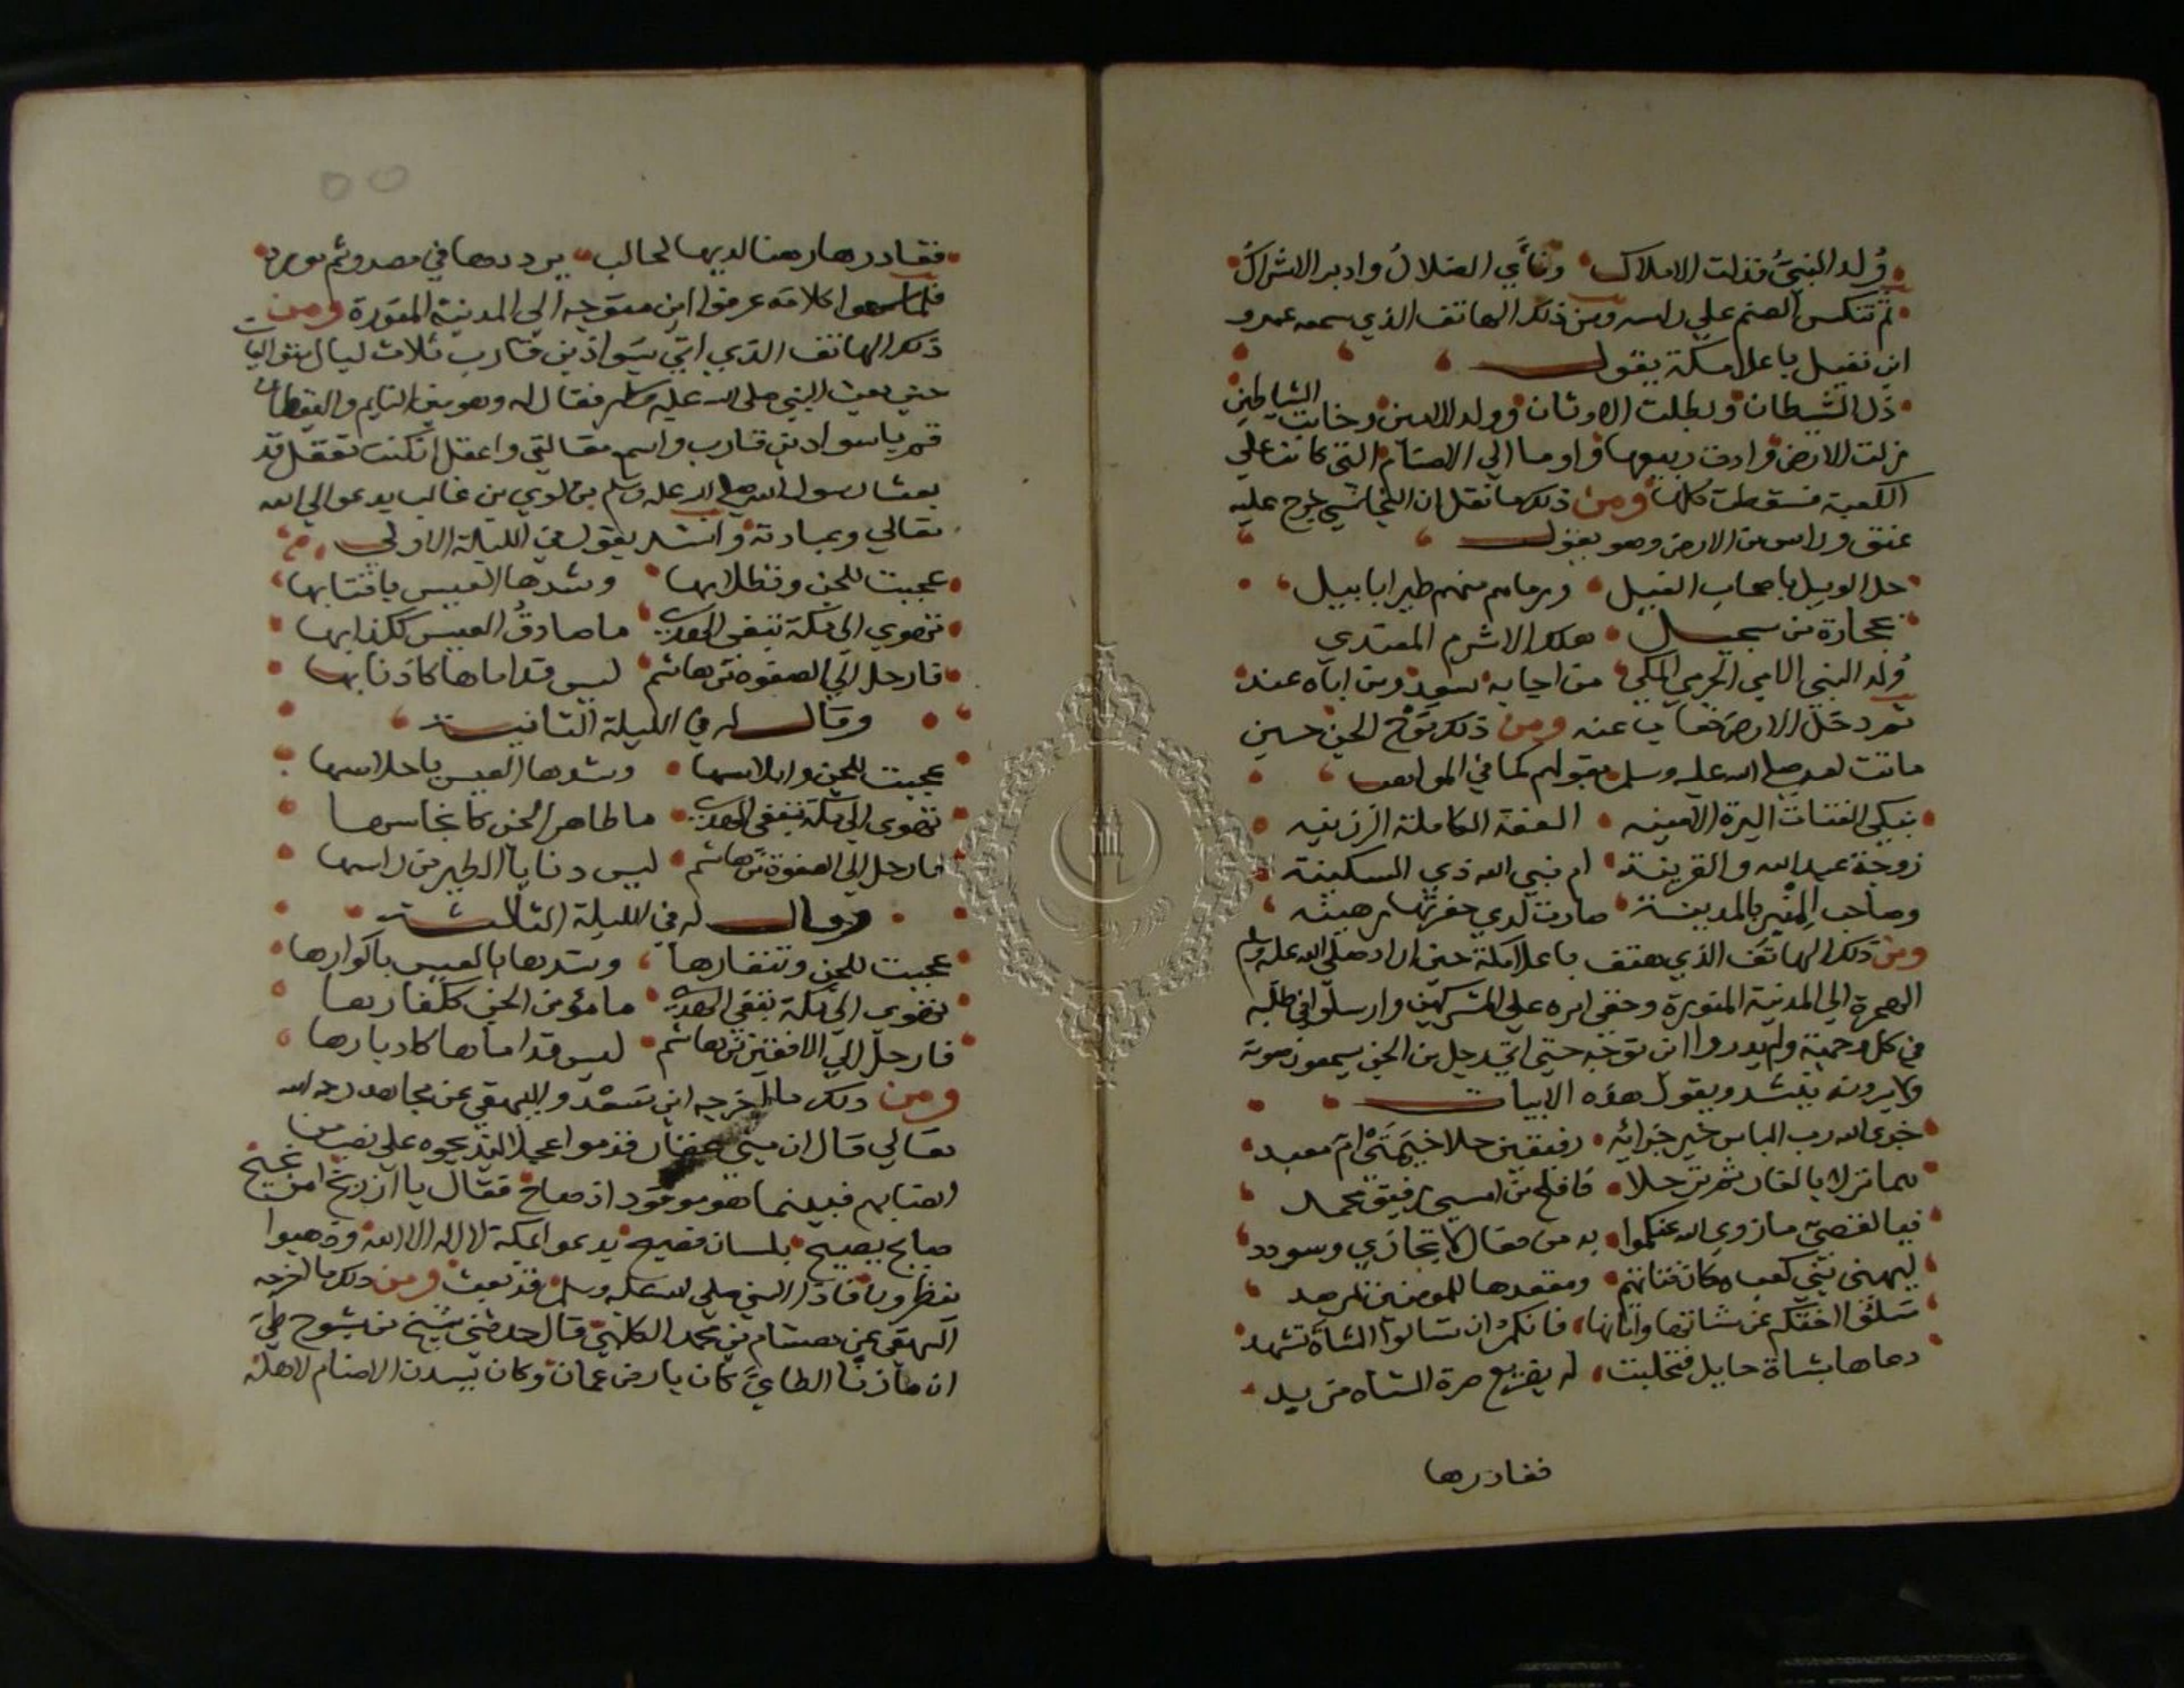 ولد النبي فذلت الاملاك ونأي الضلال وادبر الاشراك
ثم تنكس الصنم علي راسه ومن ذلك الهاتف الذي سمعه عمرو
ابن نفيل باعلا مكة يقول
ذل الشيطان وبطلت الاوثان وولد الامين وخابت الشياطين
الارض وادت ربيعها واوما الي الاصنام التي كانت علي
الكعبة فسقطت كلها ومن ذلك ما نقل ان النجاشي خرج عليه
عنق وراس من الارض وهو يقول
حل الويل باصحاب الفيل ورماهم منهم طير ابابيل
بحجارة من سجيل هلك الاشرم المعتدي
ولد النبي الامي الحرمي المكي من اجابه سعد ومن اباه عند
ثم دخل الارض فغاب عنه ومن ذلك نوح الجن حين
ماتت امه صلي الله عليه وسلم بقولهم كما في المواهب
نبكي الفتاة البرة الامينه العفة الكاملة الرزينه
زوجة عبد الله والقرينة ام نبي الله ذي السكينة
وصاحب المنبر بالمدينة صارت لدي حفرتها رهينه
ومن ذلك الهاتف الذي هتف باعلا مكة حين اراد صلي الله عليه وسلم
الهجرة الي المدينة المنورة وخفي امره علي المشركين وارسلوا في طلبه
في كل وجهة ولم يدروا اين توجه حتي اتي رجل من الجن يسمعون صوته
ولا يرونه ينشد ويقول هذه الابيات
جزي الله رب الناس خير جزائه رفيقين حلا خيمتي ام معبد
هما نزلا بالغار ثم ترحلا فافلح من امسي رفيق محمد
فيا لقصي ما زوي الله عنكموا به من فعال لا تجازي وسودد
ليهني بني كعب مكان فتاتهم ومقعدها للمومنين بمرصد
سلوا اختكم عن شاتها وانائها فانكموا ان تسالوا الشاة تشهد
دعاها بشاة حايل فتحلبت له بصريح ضرة الشاه مزبد
فغادرها
فغادرها رهنا لديها لحالب يرددها في مصدر ثم مورد
فلما سمعوا كلامه عرفوا اين متوجه الي المدينة المنورة ومن
ذلك الهاتف الذي اتي سواد بن قارب ثلاث ليال متواليات
حين بعث النبي صلي الله عليه وسلم فقال له وهو بين النايم واليقظان
قم يا سواد بن قارب واسمع مقالتي واعقل ان كنت تعقل قد
بعث رسول الله صلي الله عليه وسلم من لوي بن غالب يدعو الي الله
تعالي وعبادته وانشد يقول في الليلة الاولي
عجبت للجن وتطلابها وشدها العيس باقتابها
تهوي الي مكة تبغي الهدي ما صادق العيس ككذابها
فارحل الي الصفوة من هاشم ليس قداماها كاذنابها
وقال له في الليلة الثانية
عجبت للجن وابلاسها وشدها العيس باحلاسها
تهوي الي مكة تبغي الهدي ما طاهر الجن كانجاسها
فارحل الي الصفوة من هاشم ليس دنابا الطير من راسها
وقال له في الليلة الثالثة
عجبت للجن وتنفارها وشدها العيس باكوارها
تهوي الي مكة تبغي الهدي ما مؤمن الجن ككفارها
فارحل الي الاتقين من هاشم ليس قداماها كادبارها
ومن ذلك ما اخرجه ابن سعد والبيهقي عن مجاهد رحمه الله
تعالي قال ان بني غفار قدموا عجلا ليذبحوه علي نصب من
انصابهم فبينما هو موقود اذ صاح فقال يا ال ذريح امر نجيح
صايح يصيح بلسان فصيح يدعو بمكة لا اله الا الله وذهبوا
ينظرون فاذا النبي صلي الله عليه وسلم قد بعث ومن ذلك ما اخرجه
البيهقي عن هشام بن محمد الكلبي قال حدثني شيخ من شيوخ طي
ان مازنا الطاءي كان بارض عمان وكان يسدن الاصنام لاهله